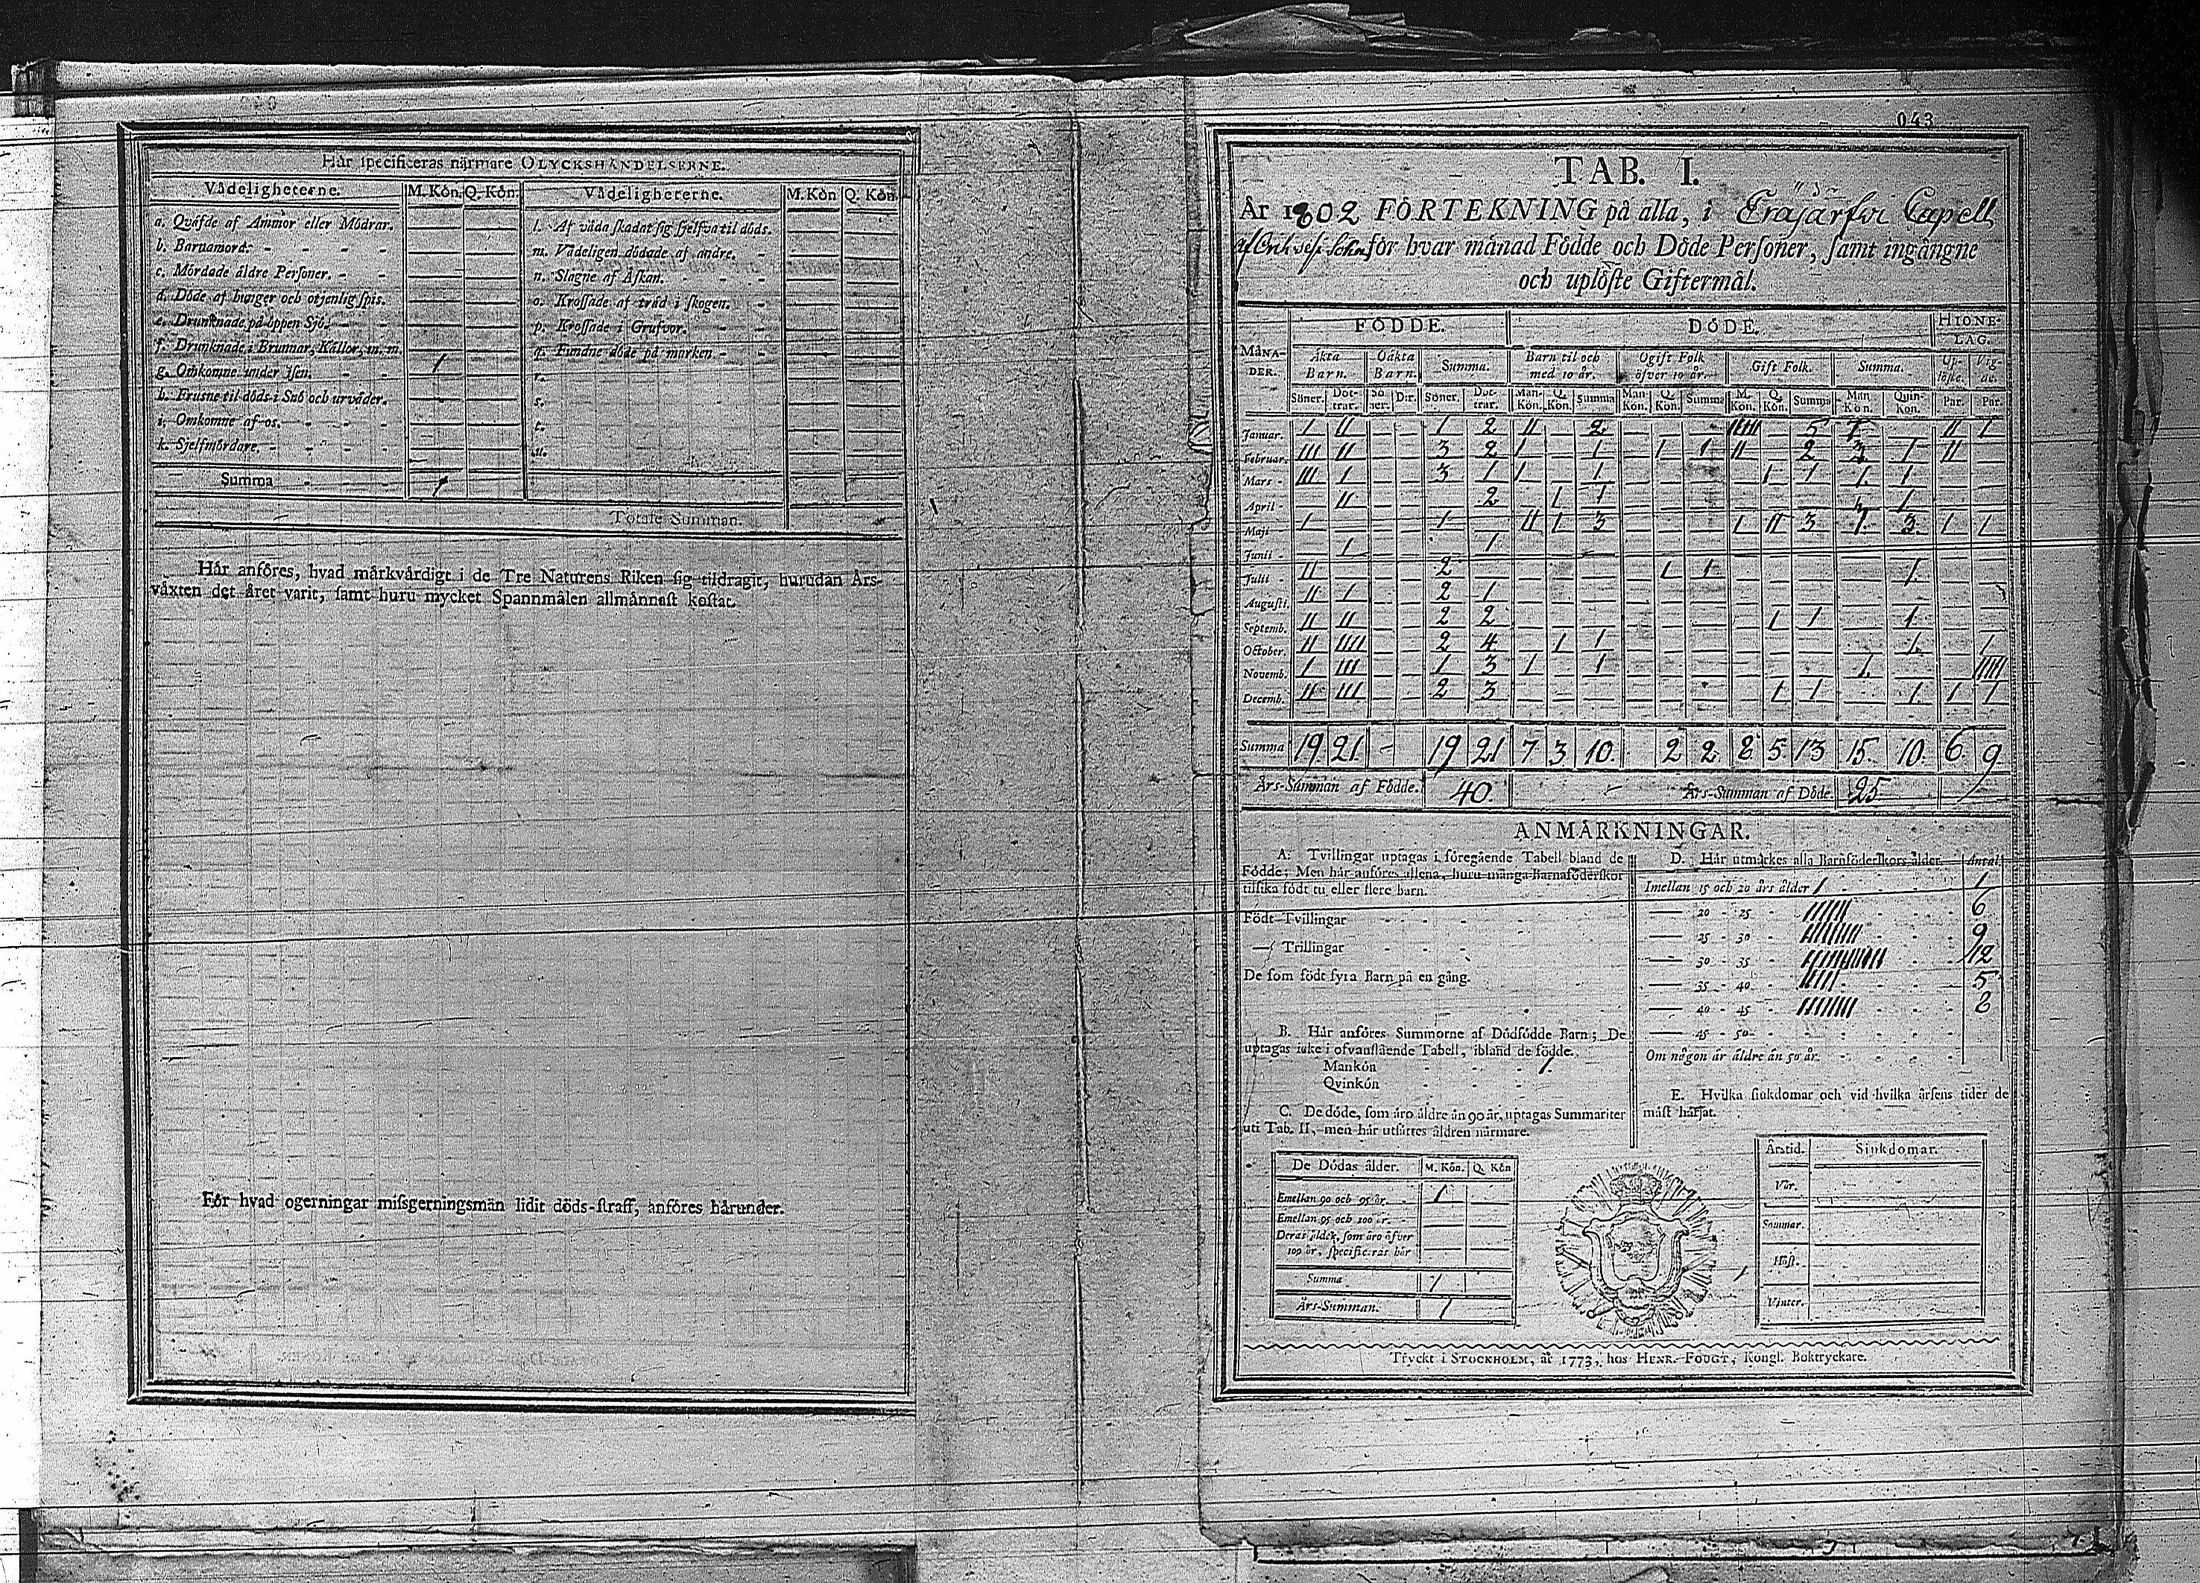 Hår specificeras nårmare OLYCKSHÅNDELSERNE.
Vådeligheterne. M. Kôn. Q. Kôn. Vådeligheterne. M. Kôn Q. Kôn.
a. Qväfde af Ammor eller Môdrar. l. Af våda skadat sig sjelfva til dôds.
b. Barnamord. m. Vådeligen dôdade af andre.
c. Môrdade åldre Personer. n. Slagne af Åskan.
d. Dôde af hunger och otjenlig spis. o. Krossade af tråd i skogen.
e. Drunknade på ôppen Sjô. p. Krossade i Grufvor.
f. Drunknade i Brunnar, Kållor, m. m. q. Fundne dôde på marken
g. Omkomne under isen. 1 r.
h. Frusne til dôds i Snô och urvåder. s.
i. Omkomne af os. t.
k. Sjelfmôrdare. u.
Summa 1
Totale Summan.
Hår anfôres, hvad mårkvårdigt i de Tre Naturens Riken sig tildragit, hurudan Års-
våxten det året varit, samt huru mycket Spannmålen allmånnast kostat.
Fôr hvad ogerningar missgerningsmån lidit dôds-straff, anfôres hårunder.
043
TAB. I.
År 1802 FÔRTEKNING på alla, i Eräjärfvi Capell
fôr hvar månad Fôdde och Dôde Personer, samt ingångne
och uplôste Giftermål.
MÅNA-DER. FÔDDE. DÔDE. HIONE-LAG.
Åkta Barn. Oåkta Barn. Summa. Barn til och med 10 år. Ogift Folk ôfver 10 år. Gift Folk. Summa. Up-lôste. Vig-de.
Sôner. Dot-trar. Sô-ner. Dr. Sôner. Dot-trar. Man-Kôn. Q. Kôn. Summa Man Kôn. Q. Kôn. Summa M. Kôn. Q. Kôn. Summa Man Kôn. Quin-Kôn. Par. Par.
Januar. 1 11 — — 1 2 11 — 2 — — — 11111 — 5 7 — 11 1
Februar. 111 11 — — 3 2 1 — 1 — 1 1 11 — 2 3 1 11 —
Mars 111 1 — — 3 1 1 — 1 — — — — 1 1 1 1 — —
April — 11 — — — 2 — 1 1 — — — — — — — 1 — —
Maji 1 — — — 1 — 11 1 3 — — — 1 11 3 3 1 1
Junii — 1 — — — 1 — — — — — — — — — — — — —
Julii 11 — — — 2 — — — — — 1 1 — — — — 1 — —
Augusti. 11 1 — — 2 1 — — — — — — — — — — — — —
Septemb. 11 11 — — 2 2 — — — — — — — 1 1 — 1 — —
October. 11 1111 — — 2 4 — 1 1 — — — — — — — 1 — 1
Novemb. 1 111 — — 1 3 1 — 1 — — — — — — 1 — — 11111
Decemb. 11 111 — — 2 3 — — — — — — — 1 1 — 1 1 1
Summa 19. 21. — 19 21 7 3 10. 2 2 8 5. 13 15. 10. 6. 9
Års-Summan af Fôdde. 40. Års-Summan af Dôde. 25.
ANMÅRKNINGAR.
A. Tvillingar uptagas i fôregående Tabell bland de
Fôdde; Men hår anfôres allena, huru många Barnafôderskor
tillika fôdt tu eller flere barn.
Fôdt Tvillingar
— Trillingar
De som fôdt fyra Barn på en gång.
B. Hår anfôres Summorne af Dôdfôdde Barn; De
uptagas icke i ofvanstående Tabell, ibland de fôdde.
Mankôn 1.
Qvinkôn
C. De dôde, som åro åldre ån 90 år, uptagas Summariter
uti Tab. II, men hår utsåttes åldren nårmare.
De Dôdas ålder. M. Kôn. Q. Kôn
Emellan 90 och 95 år. 1
Emellan 95 och 100 år.
Deras ålder, som åro ôfver
100 år, specificeras hår
Summa 1
Års-Summan. 1
D. Hår utmårkes alla Barnfôderskors ålder. Antal.
Imellan 15 och 20 års ålder 1 1
— 20 - 25 111111 6
— 25 - 30 111111111 9
— 30 - 35 111111111111 12
— 35 - 40 11111 5
— 40 - 45 11111111 8
— 45 - 50
Om någon år åldre ån 50 år.
E. Hvilka siukdomar och vid hvilka årsens tider de
måst hårjat.
Årstid. Siukdomar.
Vår.
Sommar.
Hôst.
Vinter.
Tryckt i STOCKHOLM, år 1773, hos HENR. FOUGT, Kongl. Boktryckare.